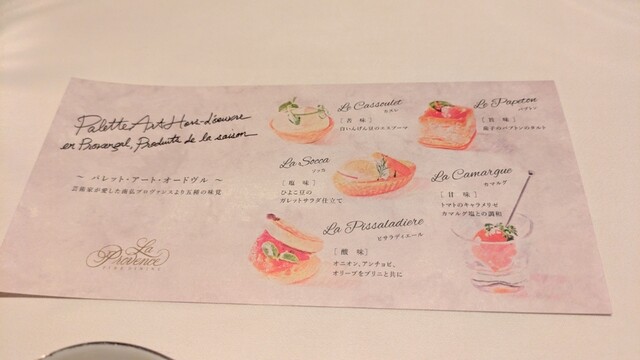 Palette Art Hors-d'œuvre
en Provençal, Produits de la saison
～ パレット・アート・オードヴル ～
芸術家が愛した南仏プロヴァンスより五種の味覚
La
Provence
FINE DINING
Le Cassoulet
カスレ
[ 苦 味 ]
白いんげん豆のエスプーマ
Le Papeton
パプトン
[ 旨 味 ]
茄子のパプトンのタルト
La Socca
ソッカ
[ 塩 味 ]
ひよこ豆の
ガレットサラダ仕立て
La Camargue
カマルグ
[ 甘 味 ]
トマトのキャラメリゼ
カマルグ塩との調和
La Pissaladiere
ピサラディエール
[ 酸 味 ]
オニオン、アンチョビ、
オリーブをブリニと共に